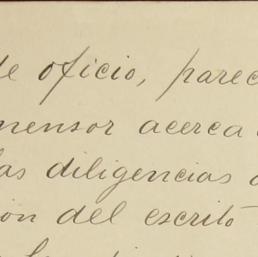 de oficio, parec
mensor acerca
las diligencias
ion del escrito